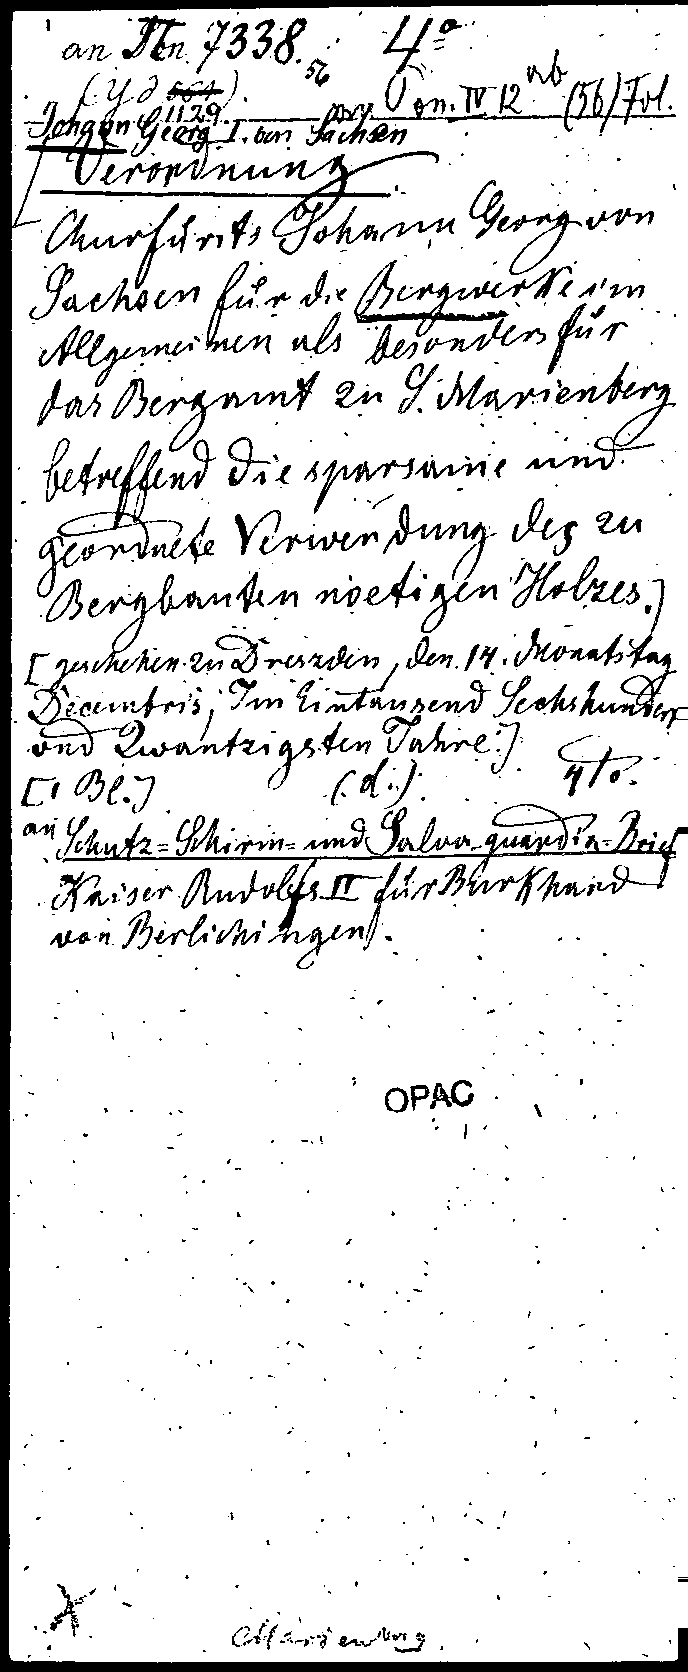 an 7338. 4°
56
(Yd 564)
1129. Pon. IV 12 ab (56) Fol.
Johann Georg I. von Sachsen
[Verordnung
Churfürsts Johann Georg von
Sachsen für die Bergwerke im
Allgemeinen als besonders für
das Bergamt zu S. Marienberg
betreffend die sparsame und
geordnete Verwendung des zu
Bergbauten noetigen Holzes.]
[geschehen zu Dreszden, den 14. Monatstag
Decembris, Im Eintausend Sechshundert
und Zwantzigsten Jahre.]
[1 Bl.] (d.) 4to.
an Schutz= Schirm= und Salva guardia-Brief
Kaiser Rudolfs II für Burkhard
von Berlichingen.
OPAC
Marienberg